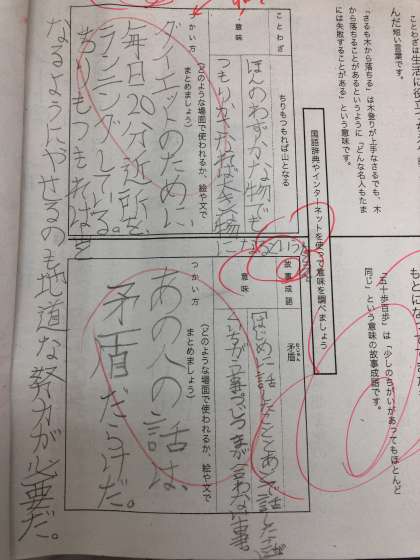 ことわざは生活に役
んだ短い言葉です。
「さるも木から落ちる」は木登りが上手なさるでも、木
から落ちることがあるというように「どんな名人もたま
には失敗することがある」という意味です。
国語辞典やインターネットを使って意味を調べましょう
ことわざ
ちりもつもれば山となる
意味
ほんのわずかな物でも
つもりかさなれば大きな物
になるという
つかい方
(どのような場面で使われるか、絵や文で
まとめましょう)
ダイエットのために、
毎日20分近所を
ランニングしている。
ちりもつもれば山と
なるようにやせるのも地道な努力が必要だ。
もとになって
「五十歩百歩」は「少しのちがいがあってもほとんど
同じ」という意味の故事成語です。
故事成語
矛盾
むじゅん
意味
はじめに話したことと、あとで話した
つかい方
(どのような場面で使われるか、絵や文で
まとめましょう)
あの人の話は、
矛盾だらけだ。